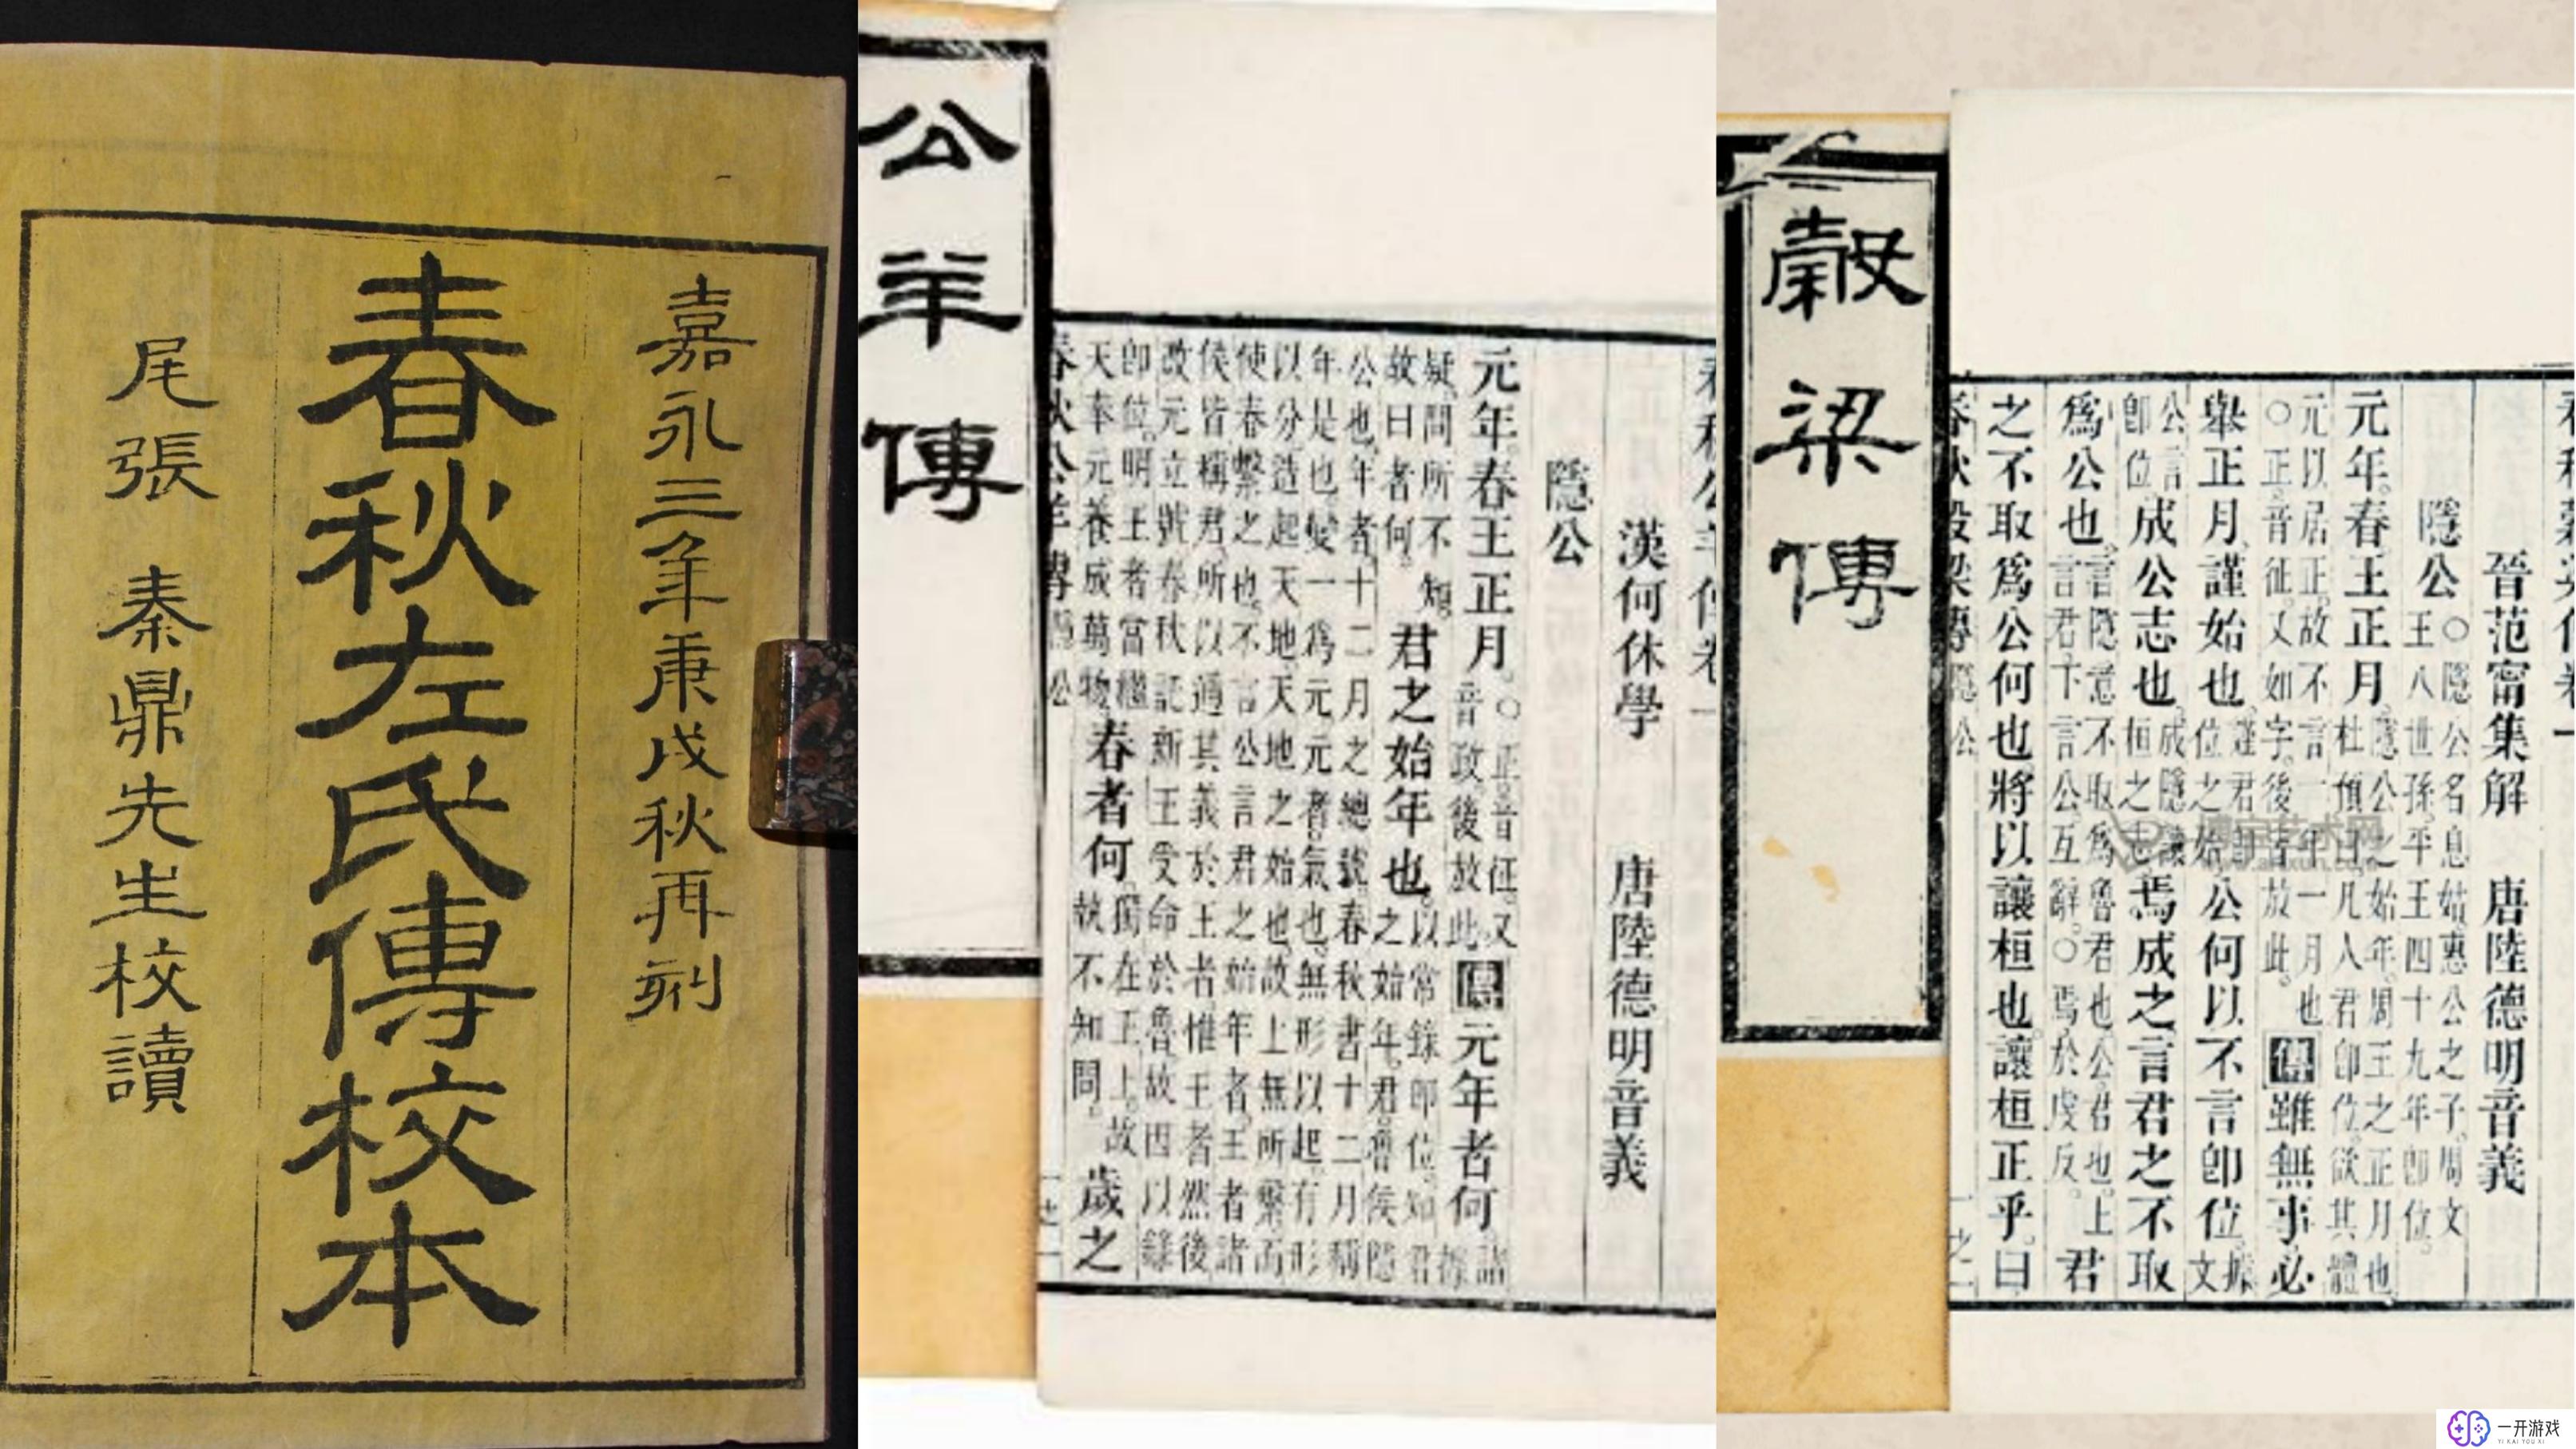 嘉永三年庚戌秋再刻
春秋左氏傳校本
尾張 秦鼎先生校讀
公羊傳
漢何休學 唐陸德明音義
隱公
元年春王正月。○正音征又音政後放此傳元年者何諸據
疑問所不知故曰者何君之始年也以常錄即位知君之始年君魯侯隱
公也年者十二月之總號春秋書十二月稱
年是也變一爲元元者氣也無形以起有形
以分造起天地天地之始也故上無所繫而
使春繫之也不言公言君之始年者王者諸
侯皆稱君所以通其義於王者惟王者然後
改元立號春秋託新王受命於魯故因以錄
即位明王者當繼天奉元養成萬物春者何獨在王上故執不知問歲之
春秋公羊傳隱公
穀梁傳
晉范甯集解 唐陸德明音義
隱公○隱公名息姑惠公之子周文王八世孫平王四十九年即位
元年春王正月隱公之始年周王之正月也杜預曰凡人君即位欲其體
元以居正故不言一年一月也○正音征又如字後皆放此傳雖無事必
舉正月謹始也謹君即位之始公何以不言即位據文
公言即位成公志也成隱讓桓之志焉成之言君之不取
爲公也言隱意不取爲魯君也公君也上言君下言公互辭○焉於虔反君
之不取爲公何也將以讓桓也讓桓正乎曰
春秋穀梁傳隱公
一开游戏
YI KAI YOU XI